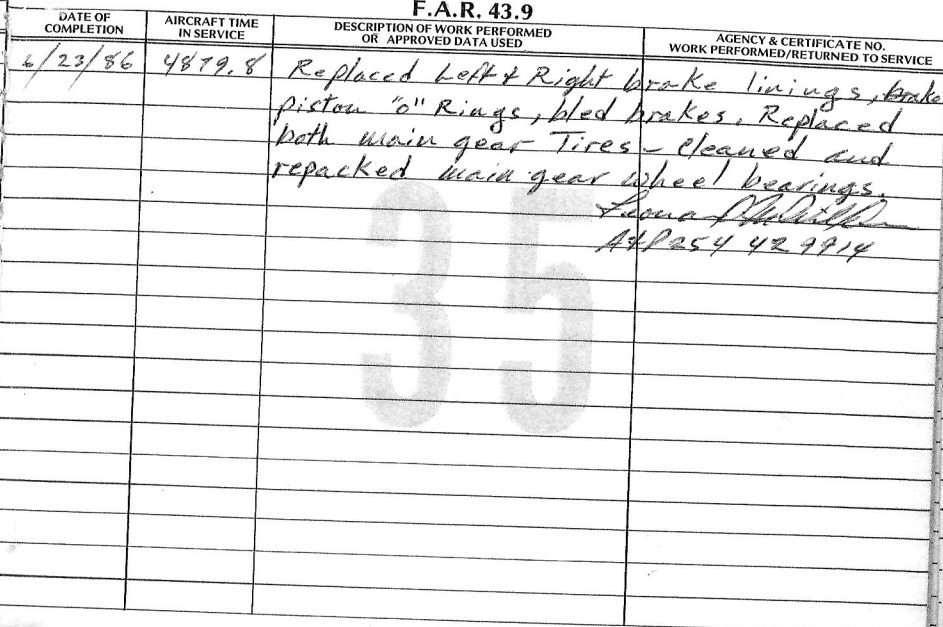 F.A.R. 43.9
DATE OF COMPLETION
AIRCRAFT TIME IN SERVICE
DESCRIPTION OF WORK PERFORMED OR APPROVED DATA USED
AGENCY & CERTIFICATE NO. WORK PERFORMED/RETURNED TO SERVICE
6/23/86 4879.8 Replaced Left & Right brake linings, brake
piston "o" Rings, bled brakes. Replaced
both main gear Tires – cleaned and
repacked main gear wheel bearings.
A&P 254 42 9914
35